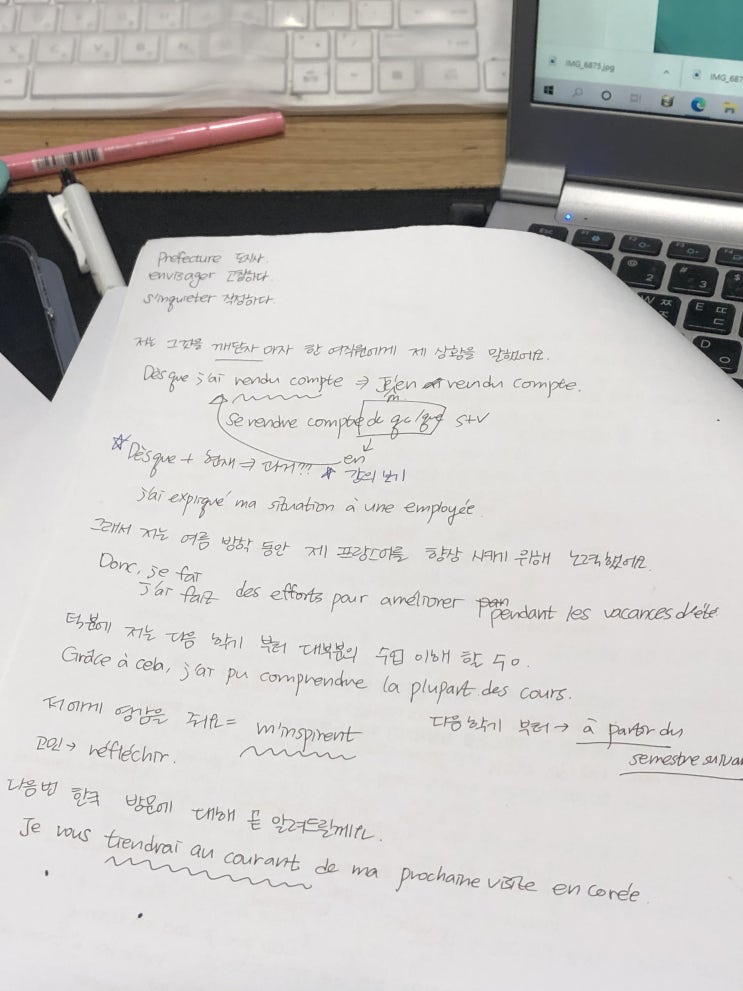 IMG_6875.jpg
IMG_687
Prefecture 도지사.
envisager 고려하다.
s'inquieter 걱정하다.
저는 그것을 깨닫자 마자 한 여직원에게 제 상황을 말했어요.
Dès que j'ai rendu compte ⇒ Je m'en rendu compte.
Se rendre compte de qc/que S+V
en
☆ Dès que + 현재 ⇒ 과거??? ☆
j'ai expliqué ma situation à une employée.
그래서 저는 여름 방학 동안 제 프랑스어를 향상 시키기 위해 노력했어요.
Donc, je fai
j'ai fait des efforts pour améliorer pendant les vacances d'été
덕분에 저는 다음 학기 부터 대부분의 수업 이해 할 수 o.
Grâce à cela, j'ai pu comprendre la plupart des cours.
저에게 영감을 줘요 = m'inspirent
다음학기 부터 → à partir du
semestre suivan
고민 → réfléchir.
다음번 한국 방문에 대해 곧 알려드릴께요.
Je vous tiendrai au courant de ma prochaine visite en corée.